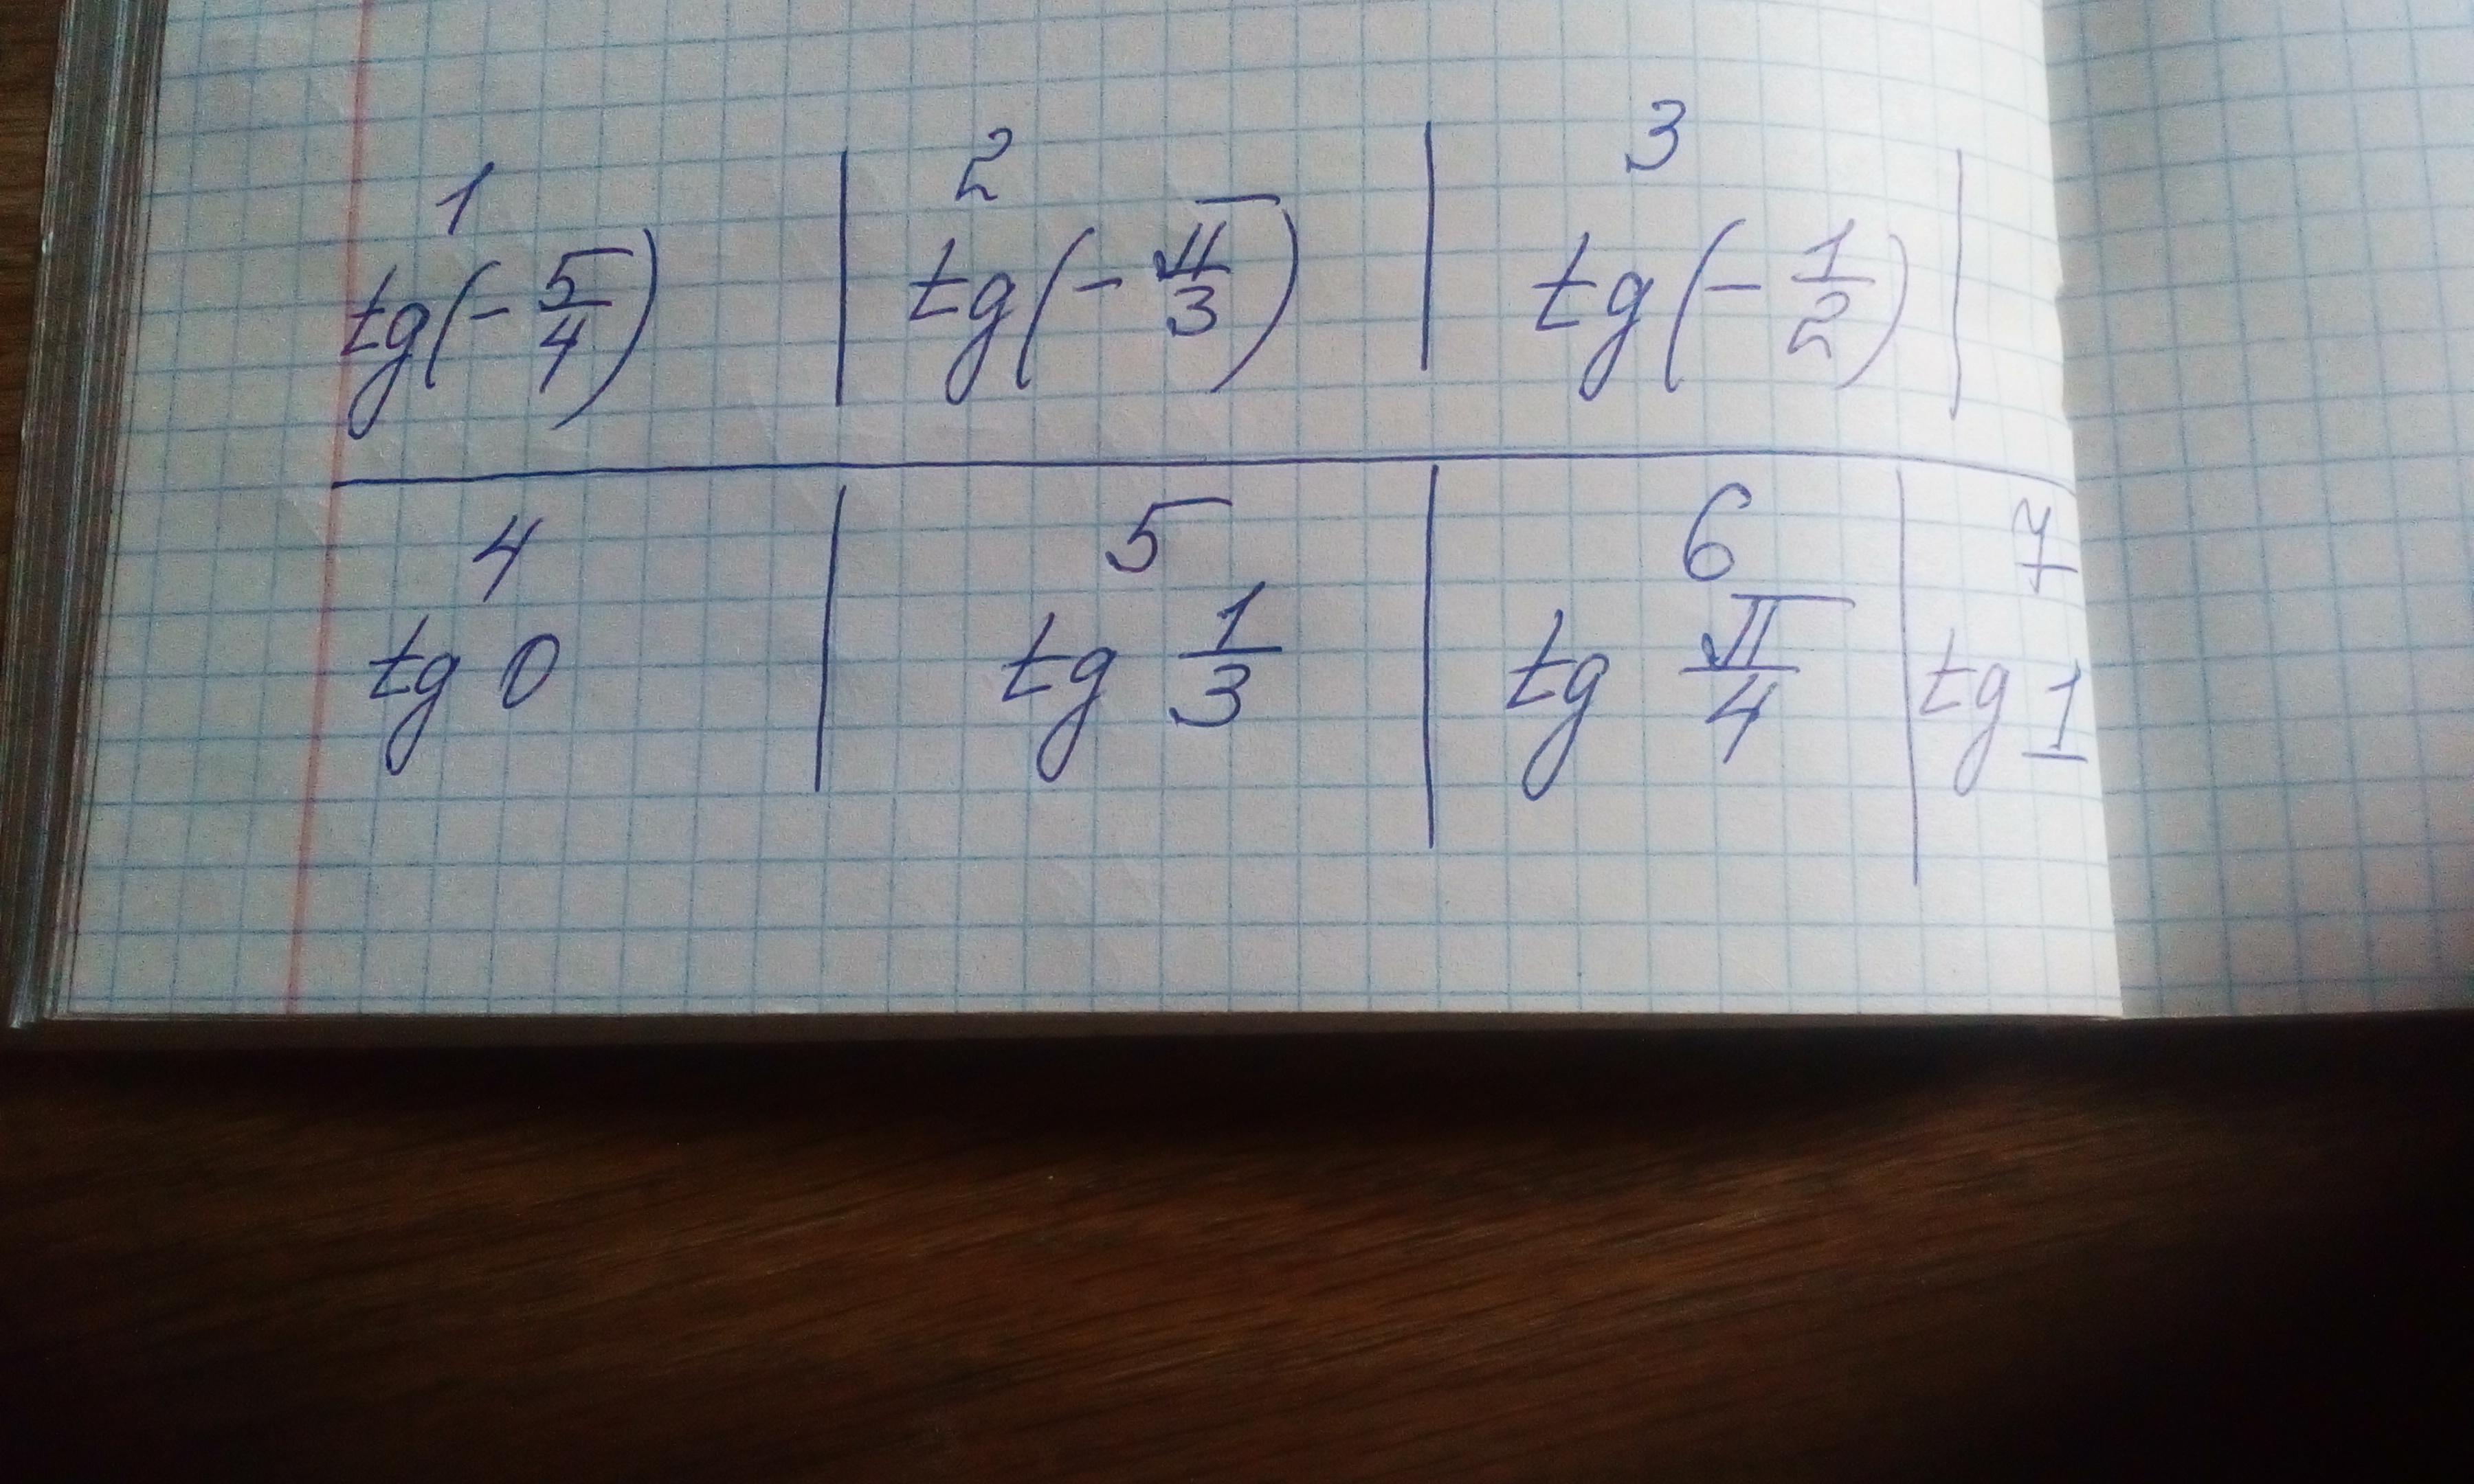 1 2 3
tg(-5/4) tg(-π/3) tg(-1/2)
4 5 6 7
tg 0 tg 1/3 tg π/4 tg 1